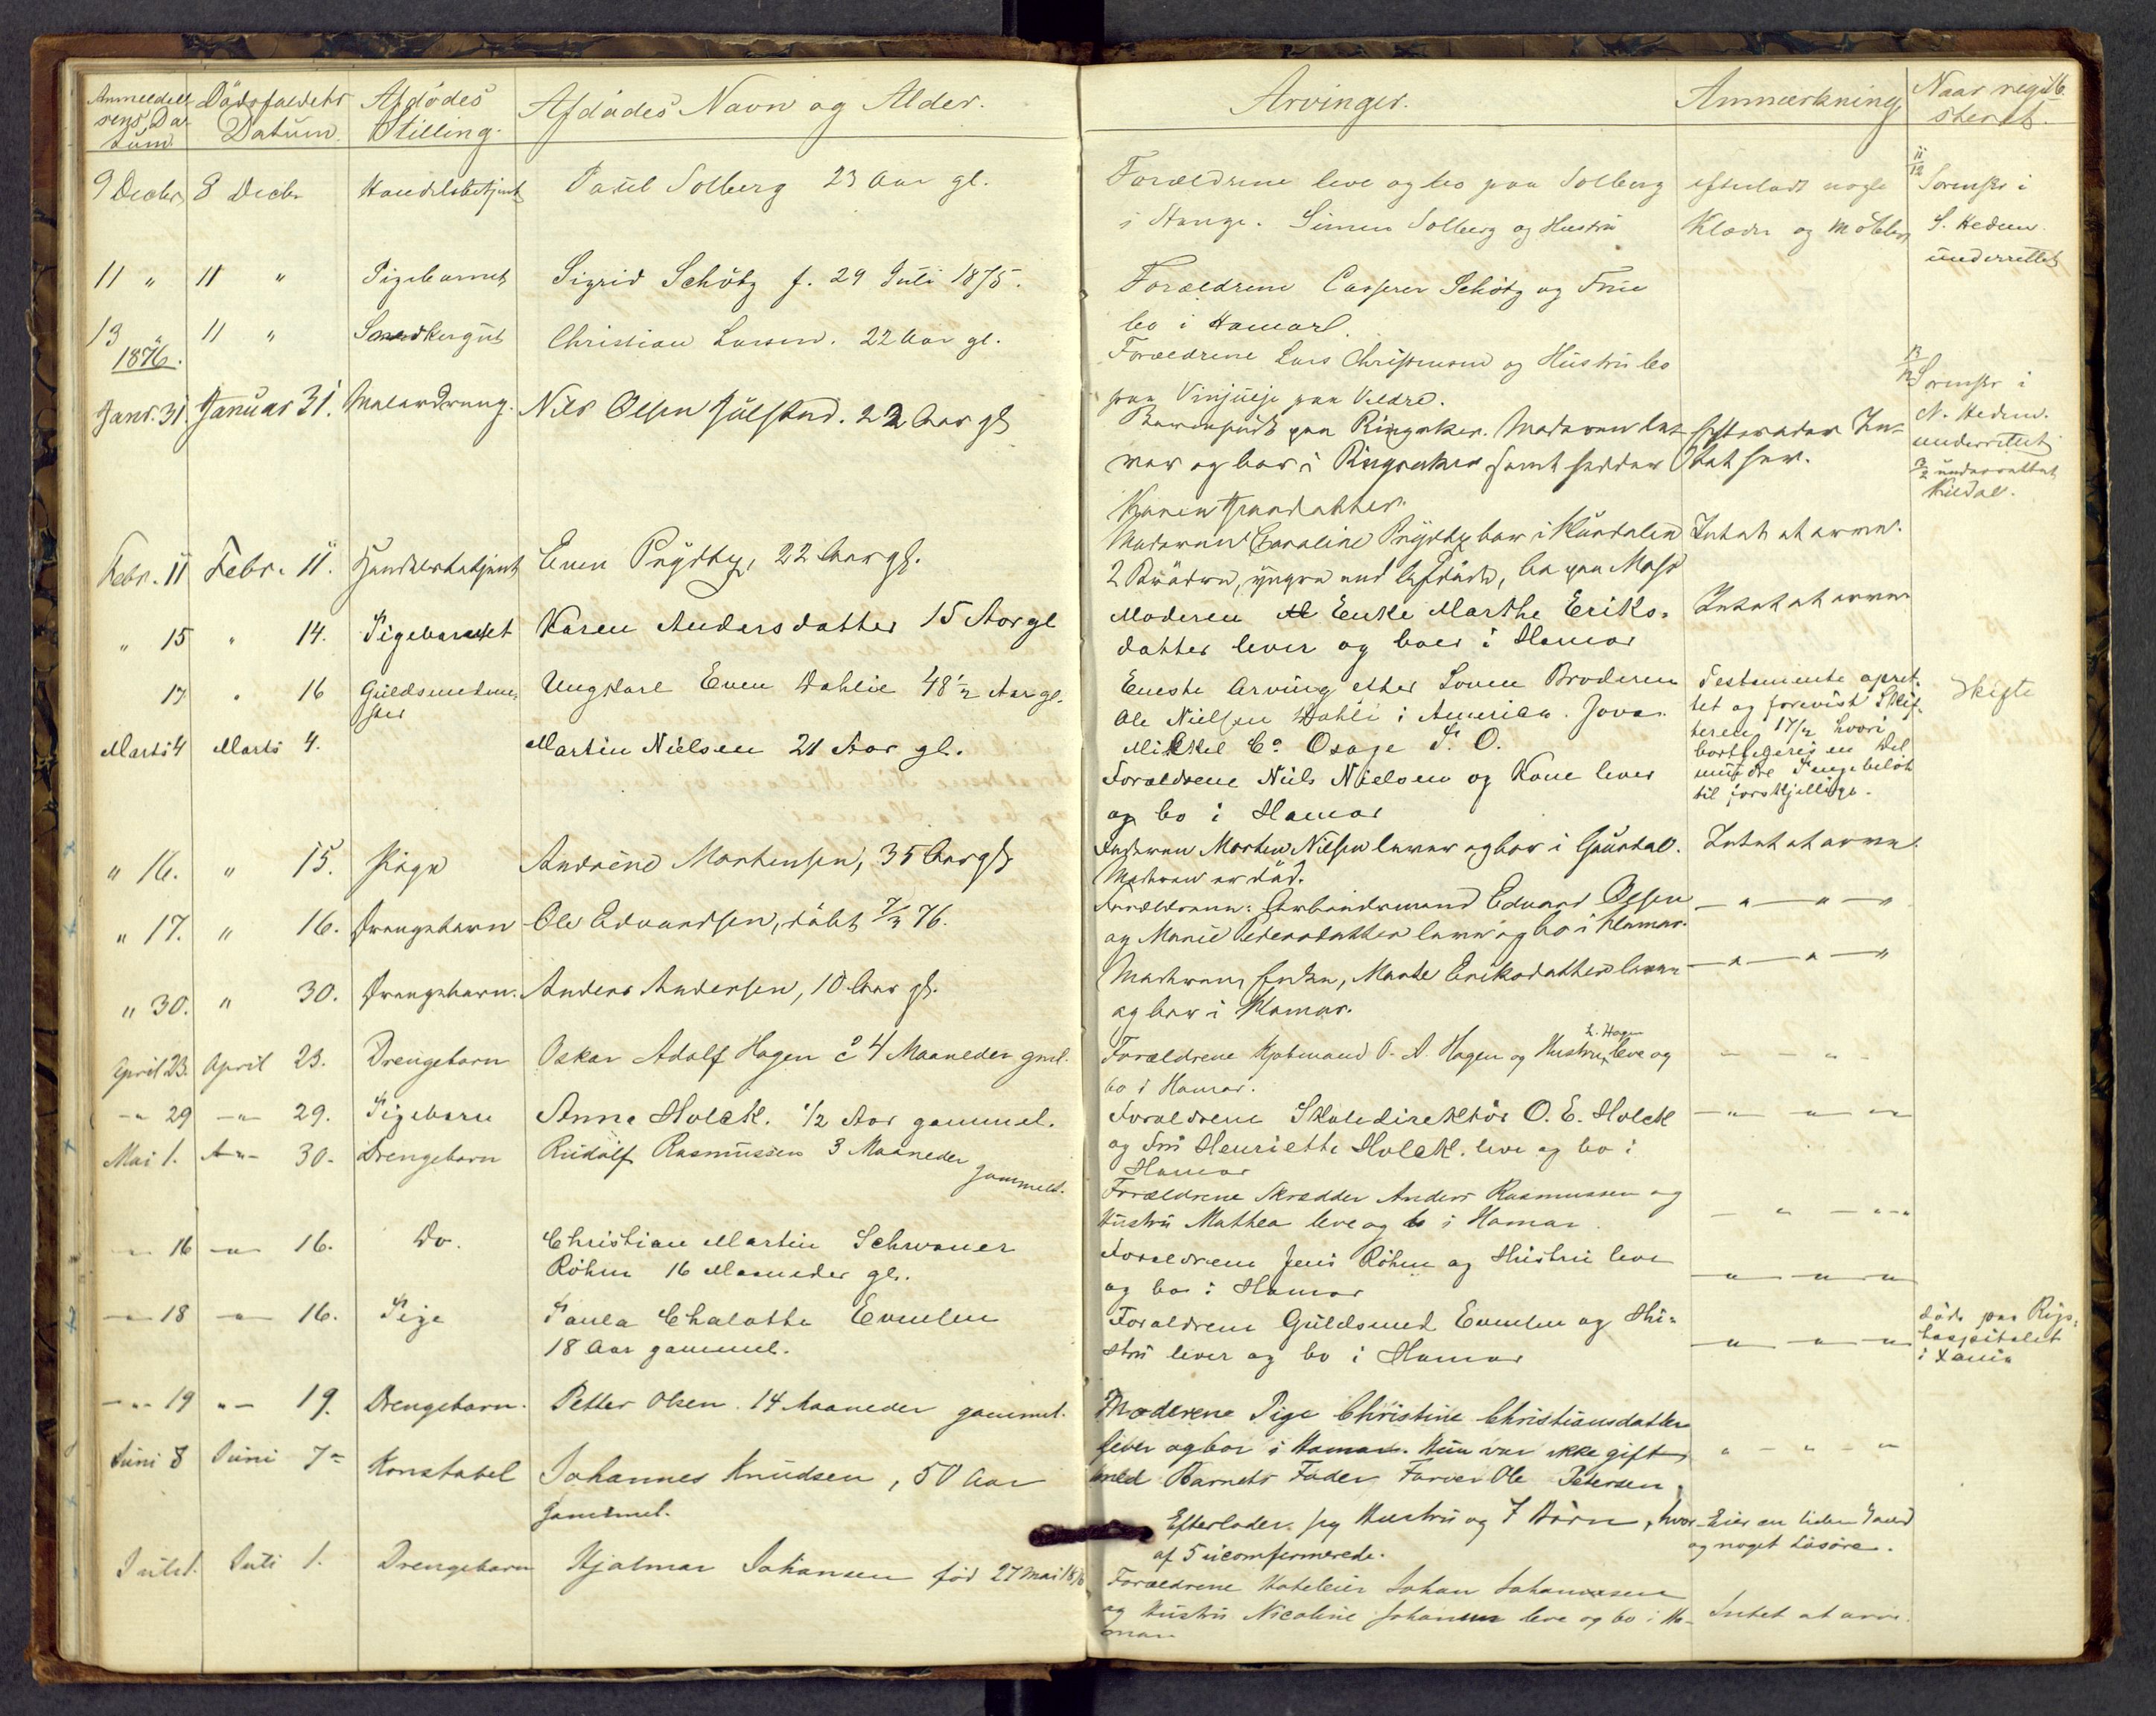 Anmeldel- Dödsfaldets Afdödes Afdödes Navn og Alder.
sens Da- Datum. Stilling.
tum
9 Decbr 8 Decbr Handelsbetjent Paul Solberg 23 Aar gl.
11 " 11 " Pigebarnet Sigrid Schötz f. 29 Juli 1875.
13 " 11 " Snedkergut Christian Larsen. 22 Aar gl.
1876.
Janr. 31. Januar 31. Malerdreng. Nils Olsen Julstad. 22 Aar gl
Febr. 11 Febr. 11. Handelsbetjent Even Prydtz, 22 Aar gl.
" 15 " 14. Pigebarnet Karen Andersdatter 15 Aar gl
17 " 16 Guldsmedme- Ungkarl Even Dahlie 48 1/2 Aar gl.
ster
Marts 4 Marts 4. Martin Nielsen 21 Aar gl.
" 16. " 15. Pige Andrine Mortensen, 35 Aar gl
" 17. " 16. Drengebarn Ole Edvardsen, döbt 7/3 76.
" 30. " 30. Drengebarn. Anders Andersen, 10 Aar gl.
April 23. April 23. Drengebarn Oskar Adolf Hagen 4 Maaneder gml.
-"- 29 -"- 29. Pigebarn Anna Holck. 1/2 Aar gammel.
Mai 1. A-"- 30. Drengebarn Rudolf Rasmussen 3 Maaneder
gammel.
-"- 16 -"- 16. Do. Christian Martin Schwaner
Röhm 16 Maaneder gl.
-"- 18 -"- 16. Pige Paula Chalotte Evensen
18 Aar gammel.
-"- 19 "- 19. Drengebarn. Petter Olsen. 14 Maaneder gammel.
Juni 8 Juni 7 Konstabel Johannes Knudsen, 50 Aar
gammel.
Juli 1. Juli 1. Drengebarn Hjalmar Johansen föd 27 Mai 1876
Arvinger. Anmærkning Naar regist-
steret.
Forældrene leve og bo paa Solberg efterladt nogle 11/12 Sorenskr i
i Stange. Simen Solberg og Hustru Klæder og Möbler S. Hedem.
underrettet
Forældrene Casserer Schötz og Frue
bo i Hamar.
Forældrene Lars Christensen og Hustru bo 13/12 Sorenskr i
paa Vinjueje paa Veldre. N. Hedem.
underrettet
paa Ringsaker. Moderen le- efterlader In-
ver og bor i Ringsaker samt tet
underrettet
Moderen Caroline Prydtz bor i Intet at arve.
2 Brödre, yngre end Afdöde, bo paa
Moderen Enke Marthe Eriks- Intet at arve
datter lever og boer i Hamar
Eneste Arving efter Loven Broderen Testamente opret- Skifte
Ole Nielsen Dahli i Amerika. Jova. tet og forevist Skif-
Mikkel Co Osage P. O. teren 17/2 hvori
bortlegeres en Del
Forældrene Nils Nielsen og Kone lever mindre Pengebelöb
til forskjellige.
og bo i Hamar
Faderen Morten Nilsen lever og bor i Intet at arve.
Moderen er död.
Forældrene: Arbeidsmand Edvard Olsen - " - " - "
og Marie Pedersdatter lever og bo i Hamar.
Moderen, Enke, Marte Eriksdatter lever - " - " - "
og bor i Hamar.
L. Hagen
Forældrene Kjöbmand O. A. Hagen og Hustru leve og - - " -
bo i Hamar.
Forældrene Skoledirektör O. E. Holck - " - " - "
og Fru Henriette Holck. leve og bo i
Hamar
Forældrene Skrædder Anders Rasmussen og
Hustru Mathea leve og bo i Hamar. - " - " - "
Forældrene Jens Röhm og Hustru leve
og bo i Hamar - " - " - "
Forældrene Guldsmed Evensen og Hu- död paa Rigs-
stru lever og bo i Hamar - " - " - " hospitalet
i Xania
Moderene Pige Christine Christiansdatter
lever og bor i Hamar. Hun var ikke gift " - " - "
med Barnets Fader Farver Ole Petersen
Efterlader sig Hustru og 7 Börn, hvor- Eier en liden Gaard
af 5 uconfirmerede. og noget Lösöre.
Forældrene Hoteleier Johan Johannesen
og Hustru Nicoline Johansen leve og bo i Ha- Intet at arve.
mar